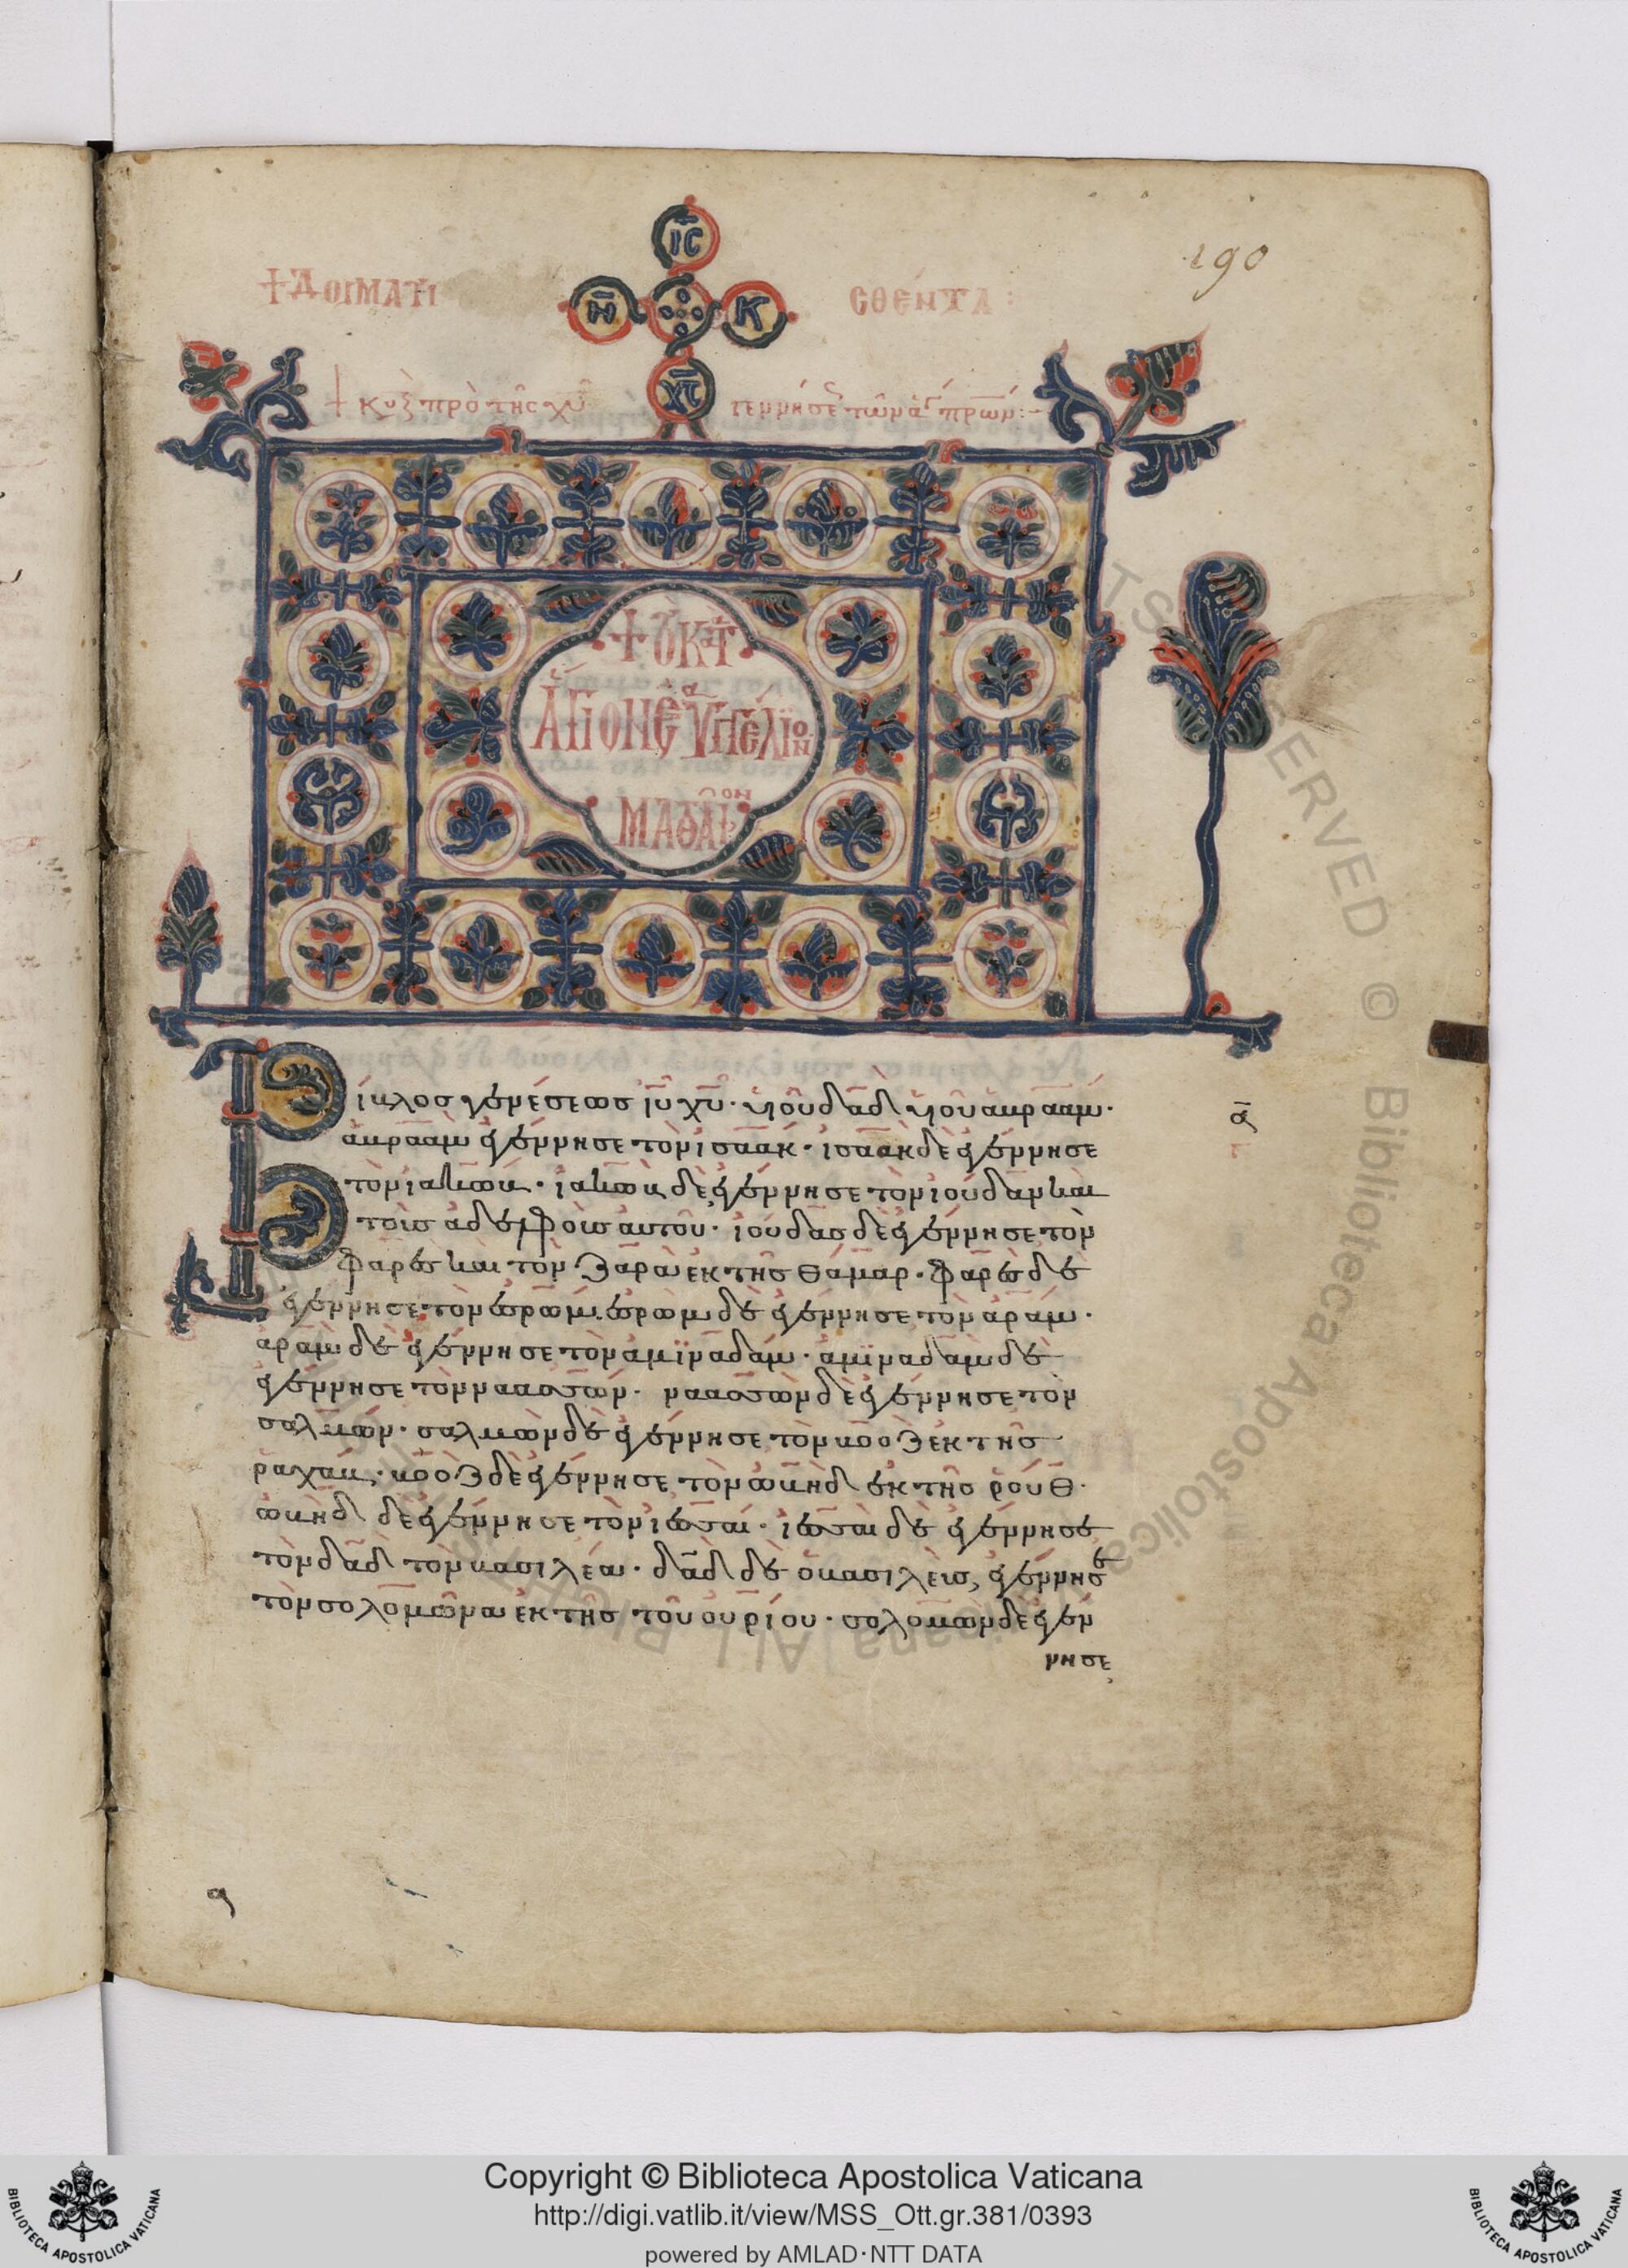 190
ΙϹ
ΝΗ Κ
ΧϹ
ϹΘΕΝΤΑ :
+ κυ πρὸ τῆς χυ γεννήσε τῶν πρων :-
+ ΟΚΑΤ
ΑΓΙΟΝ ΕΥΑΓΓΕΛΙΟΝ
ΜΑΘΑΙΟΝ
Βίβλος γενέσεως ιυ χυ· υἱοῦ δαδ υἱοῦ ἀβραάμ·
ἀβραὰμ ἐγέννησε τὸν ἰσαάκ· ἰσαὰκ δὲ ἐγέννησε
τὸν ἰακώβ· ἰακὼβ δὲ ἐγέννησε τὸν ἰούδαν καὶ
τοὺς ἀδελφοὺς αὐτοῦ· ἰούδας δὲ ἐγέννησε τὸν
φαρὲς καὶ τὸν ζαρὰ ἐκ τῆς θάμαρ· φαρὲς δὲ
ἐγέννησε τὸν ἐσρώμ· ἐσρὼμ δὲ ἐγέννησε τὸν ἀράμ·
ἀρὰμ δὲ ἐγέννησε τὸν ἀμϊναδάμ· ἀμϊναδὰμ δὲ
ἐγέννησε τὸν ναασσών· ναασσὼν δὲ ἐγέννησε τὸν
σαλμών· σαλμὼν δὲ ἐγέννησε τὸν βοὸζ ἐκ τῆς
ῥαχάβ· βοὸζ δὲ ἐγέννησε τὸν ὠβὴδ ἐκ τῆς ῥούθ·
ὠβὴδ δὲ ἐγέννησε τὸν ἰεσσαί· ἰεσσαὶ δὲ ἐγέννησε
τὸν δαδ τὸν βασιλέα· δαδ δὲ ὁ βασιλεὺς ἐγέννησε
τὸν σολομῶνα ἐκ τῆς τοῦ οὐρίου· σολομὼν δὲ ἐγέν
νησε
Copyright © Biblioteca Apostolica Vaticana
http://digi.vatlib.it/view/MSS_Ott.gr.381/0393
powered by AMLAD·NTT DATA
BIBLIOTECA APOSTOLICA VATICANA
BIBLIOTECA APOSTOLICA VATICANA